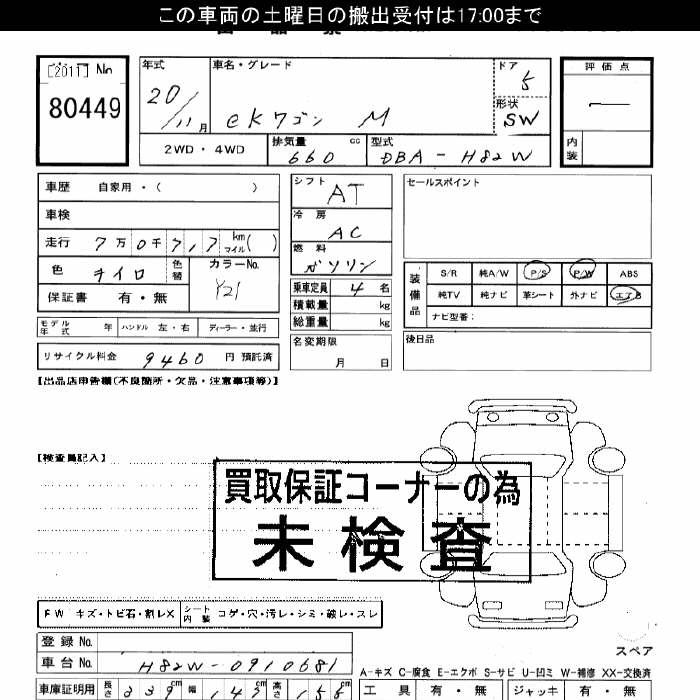 この車両の土曜日の搬出受付は17:00まで
[2011] No
80449
年式 車名・グレード ドア 評価点
20/11月 eKワゴン M 5
形状 SW
2WD・4WD 排気量 660 cc 型式 DBA-H82W 内装
車歴 自家用・( )
車検
走行 7万0千7,1,7 km マイル( )
色 チイロ 色替 カラーNo. Y21
保証書 有・無
シフト AT
冷房 AC
燃料 ガソリン
乗車定員 4名
積載量 kg
総重量 kg
セールスポイント
装備品 S/R 純A/W P/S P/W ABS
純TV 純ナビ 革シート 外ナビ エアB
ナビ型番:
モデル年式 年 ハンドル 左・右 ディーラー・並行
名変期限 月 日
後日品
リサイクル料金 9460 円 預託済
【出品店申告欄(不良箇所・欠品・注意事項等)】
【検査員記入】
買取保証コーナーの為
未検査
FW キズ・トビ石・割レX シート内装 コゲ・穴・汚レ・シミ・破レ・スレ
登録No.
車台No. H82W-0910681
スペア
A-キズ C-腐食 E-エクボ S-サビ U-凹ミ W-補修 XX-交換済
車庫証明用 長さ 339cm 幅 147cm 高さ 155cm 工具 有・無 ジャッキ 有・無